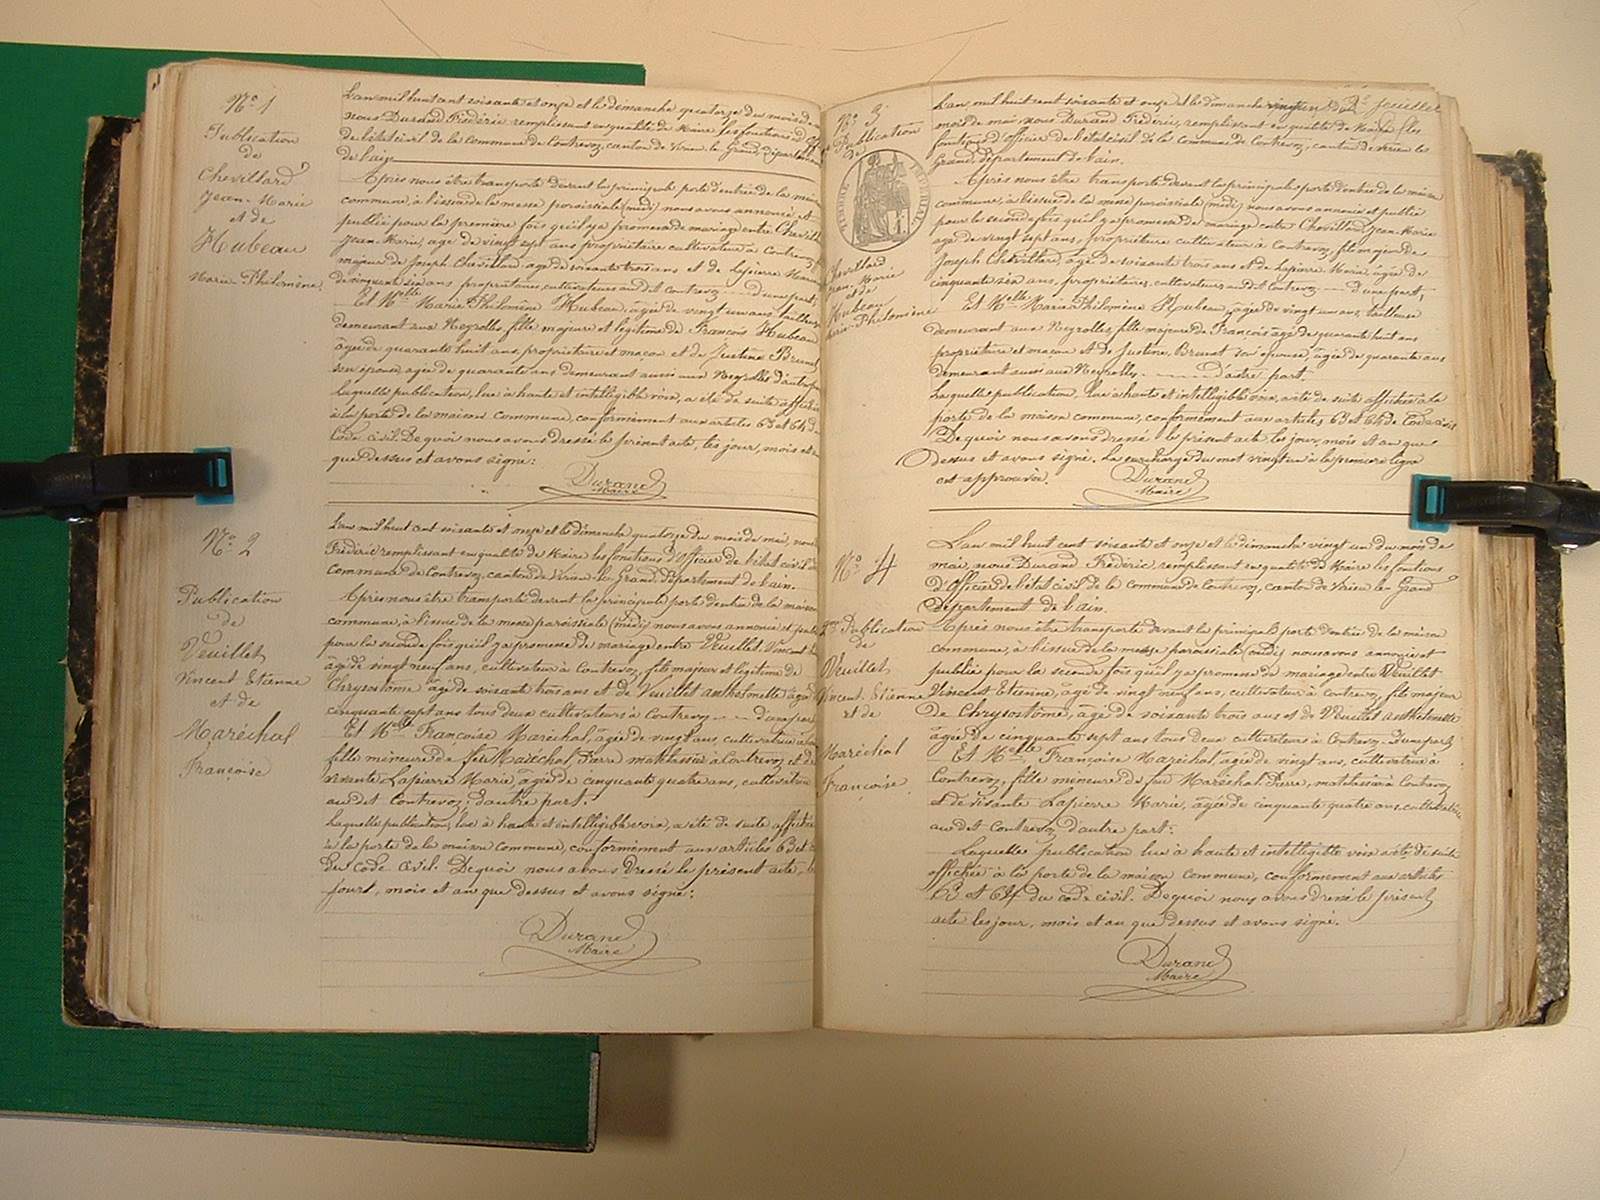 N° 1
Publication
de
Chevillard
Jean-Marie
et de
Hubeau
Marie-Philomène.
L'an mil huit cent soixante et onze et le dimanche quatorze du mois de
nous Durand Frédéric remplissant en qualité de Maire les fonctions d'
de l'état civil de la commune de Contrevoz, canton de Virieu le Grand, département
de l'ain.
Après nous être transporté devant la principale porte d'entrée de la maison
commune, à l'issue de la messe paroissiale (midi) nous avons annoncé et
publié pour la première fois qu'il y a promesse de mariage entre Chevillard
Jean Marie, age de vingt sept ans propriétaire cultivateur à Contrevoz
majeur de Joseph Chevillard, agé de soixante trois ans et de Lapierre Marie
de cinquante six ans, propriétaires, cultivateurs audit Contrevoz d'une part,
Et Melle Marie Philomène Hubeau, âgée de vingt un ans tailleuse
demeurant aux Neyrolles, fille majeure et légitime de François Hubeau
âgé de quarante huit ans, propriétaire et maçon et de Justine Brunet
son épouse, agée de quarante ans demeurant aussi aux Neyrolles d'autre part
Laquelle publication, lue à haute et intelligible voix, a été de suite affichée
à la porte de la maison commune, conformément aux articles 63 et 64 du
Code civil. De quoi nous avons dressé le présent acte, les jour, mois et an
que dessus et avons signé:
Durand
Maire
N° 2
Publication
de
Veuillet
Vincent Etienne
et de
Maréchal
Françoise
L'an mil huit cent soixante et onze et le dimanche quatorze du mois de mai, nous
Frédéric remplissant en qualité de Maire les fonctions d'Officier de l'état civil de
commune de Contrevoz, canton de Virieu-le-Grand, département de l'ain.
Après nous être transporté devant la principale porte d'entrée de la maison
commune, à l'issue de la messe paroissiale (midi) nous avons annoncé et publié
pour la seconde fois qu'il y a promesse de mariage entre Veuillet Vincent
agé de vingt neuf ans, cultivateur à Contrevoz, fils majeur et légitime de
Chrysostôme agé de soixante trois ans et de Veuillet anthelmette agée
cinquante sept ans tous deux cultivateurs à Contrevoz d'une part
Et Melle Françoise Maréchal, agée de vingt ans, cultivatrice
fille mineure de feu Maréchal Pierre matelassier à Contrevoz et de
vivante Lapierre Marie, agée de cinquante quatre ans, cultivatrice
audit Contrevoz, d'autre part.
Laquelle publication, lue à haute et intelligible voix, a été de suite affichée
à la porte de la maison commune, conformément aux articles 63 et
du Code civil. De quoi nous avons dressé le présent acte, les
jour, mois et an que dessus et avons signé:
Durand
Maire
2e feuillet
N° 3
Publication
de
TIMBRE IMPÉRIAL
Chevillard
Jean-Marie
et de
Hubeau
Marie-Philomène
L'an mil huit cent soixante et onze et le dimanche vingt un du
mois de mai nous Durand Frédéric, remplissant en qualité de Maire les
fonctions d'officier de l'état civil de la commune de Contrevoz, canton de Virieu le
Grand, département de l'ain.
Après nous être transporté devant la principale porte d'entrée de la maison
commune, à l'issue de la messe paroissiale (midi) nous avons annoncé et publié
pour la seconde fois qu'il y a promesse de mariage entre Chevillard Jean-Marie
agé de vingt sept ans, propriétaire cultivateur à Contrevoz, fils majeur de
Joseph Chevillard, agé de soixante trois ans et de Lapierre Marie, agée de
cinquante six ans, propriétaires, cultivateurs audit Contrevoz d'une part,
Et Melle Marie Philomène Hubeau, agée de vingt un ans, tailleuse
demeurant aux Neyrolles, fille majeure de François âgé de quarante huit ans
propriétaire et maçon et de Justine Brunet son épouse, agée de quarante ans
demeurant aussi aux Neyrolles d'autre part.
Laquelle publication, lue à haute et intelligible voix, a été de suite affichée à la
porte de la maison commune, conformément aux articles 63 et 64 du Code civil
De quoi nous avons dressé le présent acte les jour, mois et an que
dessus et avons signé. La surcharge du mot vingt un à la première ligne
est approuvée.
Durand
Maire
N° 4
2me Publication
de
Veuillet
Vincent Etienne
et de
Maréchal
Françoise
L'an mil huit cent soixante et onze et le dimanche vingt un du mois de
mai, nous Durand Frédéric remplissant en qualité de Maire les fonctions
d'Officier de l'état civil de la commune de Contrevoz, canton de Virieu le Grand
Département de l'ain.
Après nous être transporté devant la principale porte d'entrée de la maison
commune, à l'issue de la messe paroissiale (midi) nous avons annoncé et
publié pour la seconde fois qu'il y a promesse de mariage entre Veuillet
Vincent Etienne, âgé de vingt neuf ans, cultivateur à Contrevoz, fils majeur
de Chrysostôme, âgé de soixante trois ans et de Veuillet anthelmette
agée de cinquante sept ans tous deux cultivateurs à Contrevoz d'une part
Et Melle Françoise Maréchal, agée de vingt ans, cultivatrice à
Contrevoz, fille mineure de feu Maréchal Pierre, matelassier à Contrevoz
et de vivante Lapierre Marie, agée de cinquante quatre ans, cultivatrice
audit Contrevoz d'autre part:
Laquelle publication lue à haute et intelligible voix a été de suite
affichée à la porte de la maison commune, conformément aux articles
63 et 64 du code civil. De quoi nous avons dressé le présent
acte les jour, mois et an que dessus et avons signé.
Durand
Maire